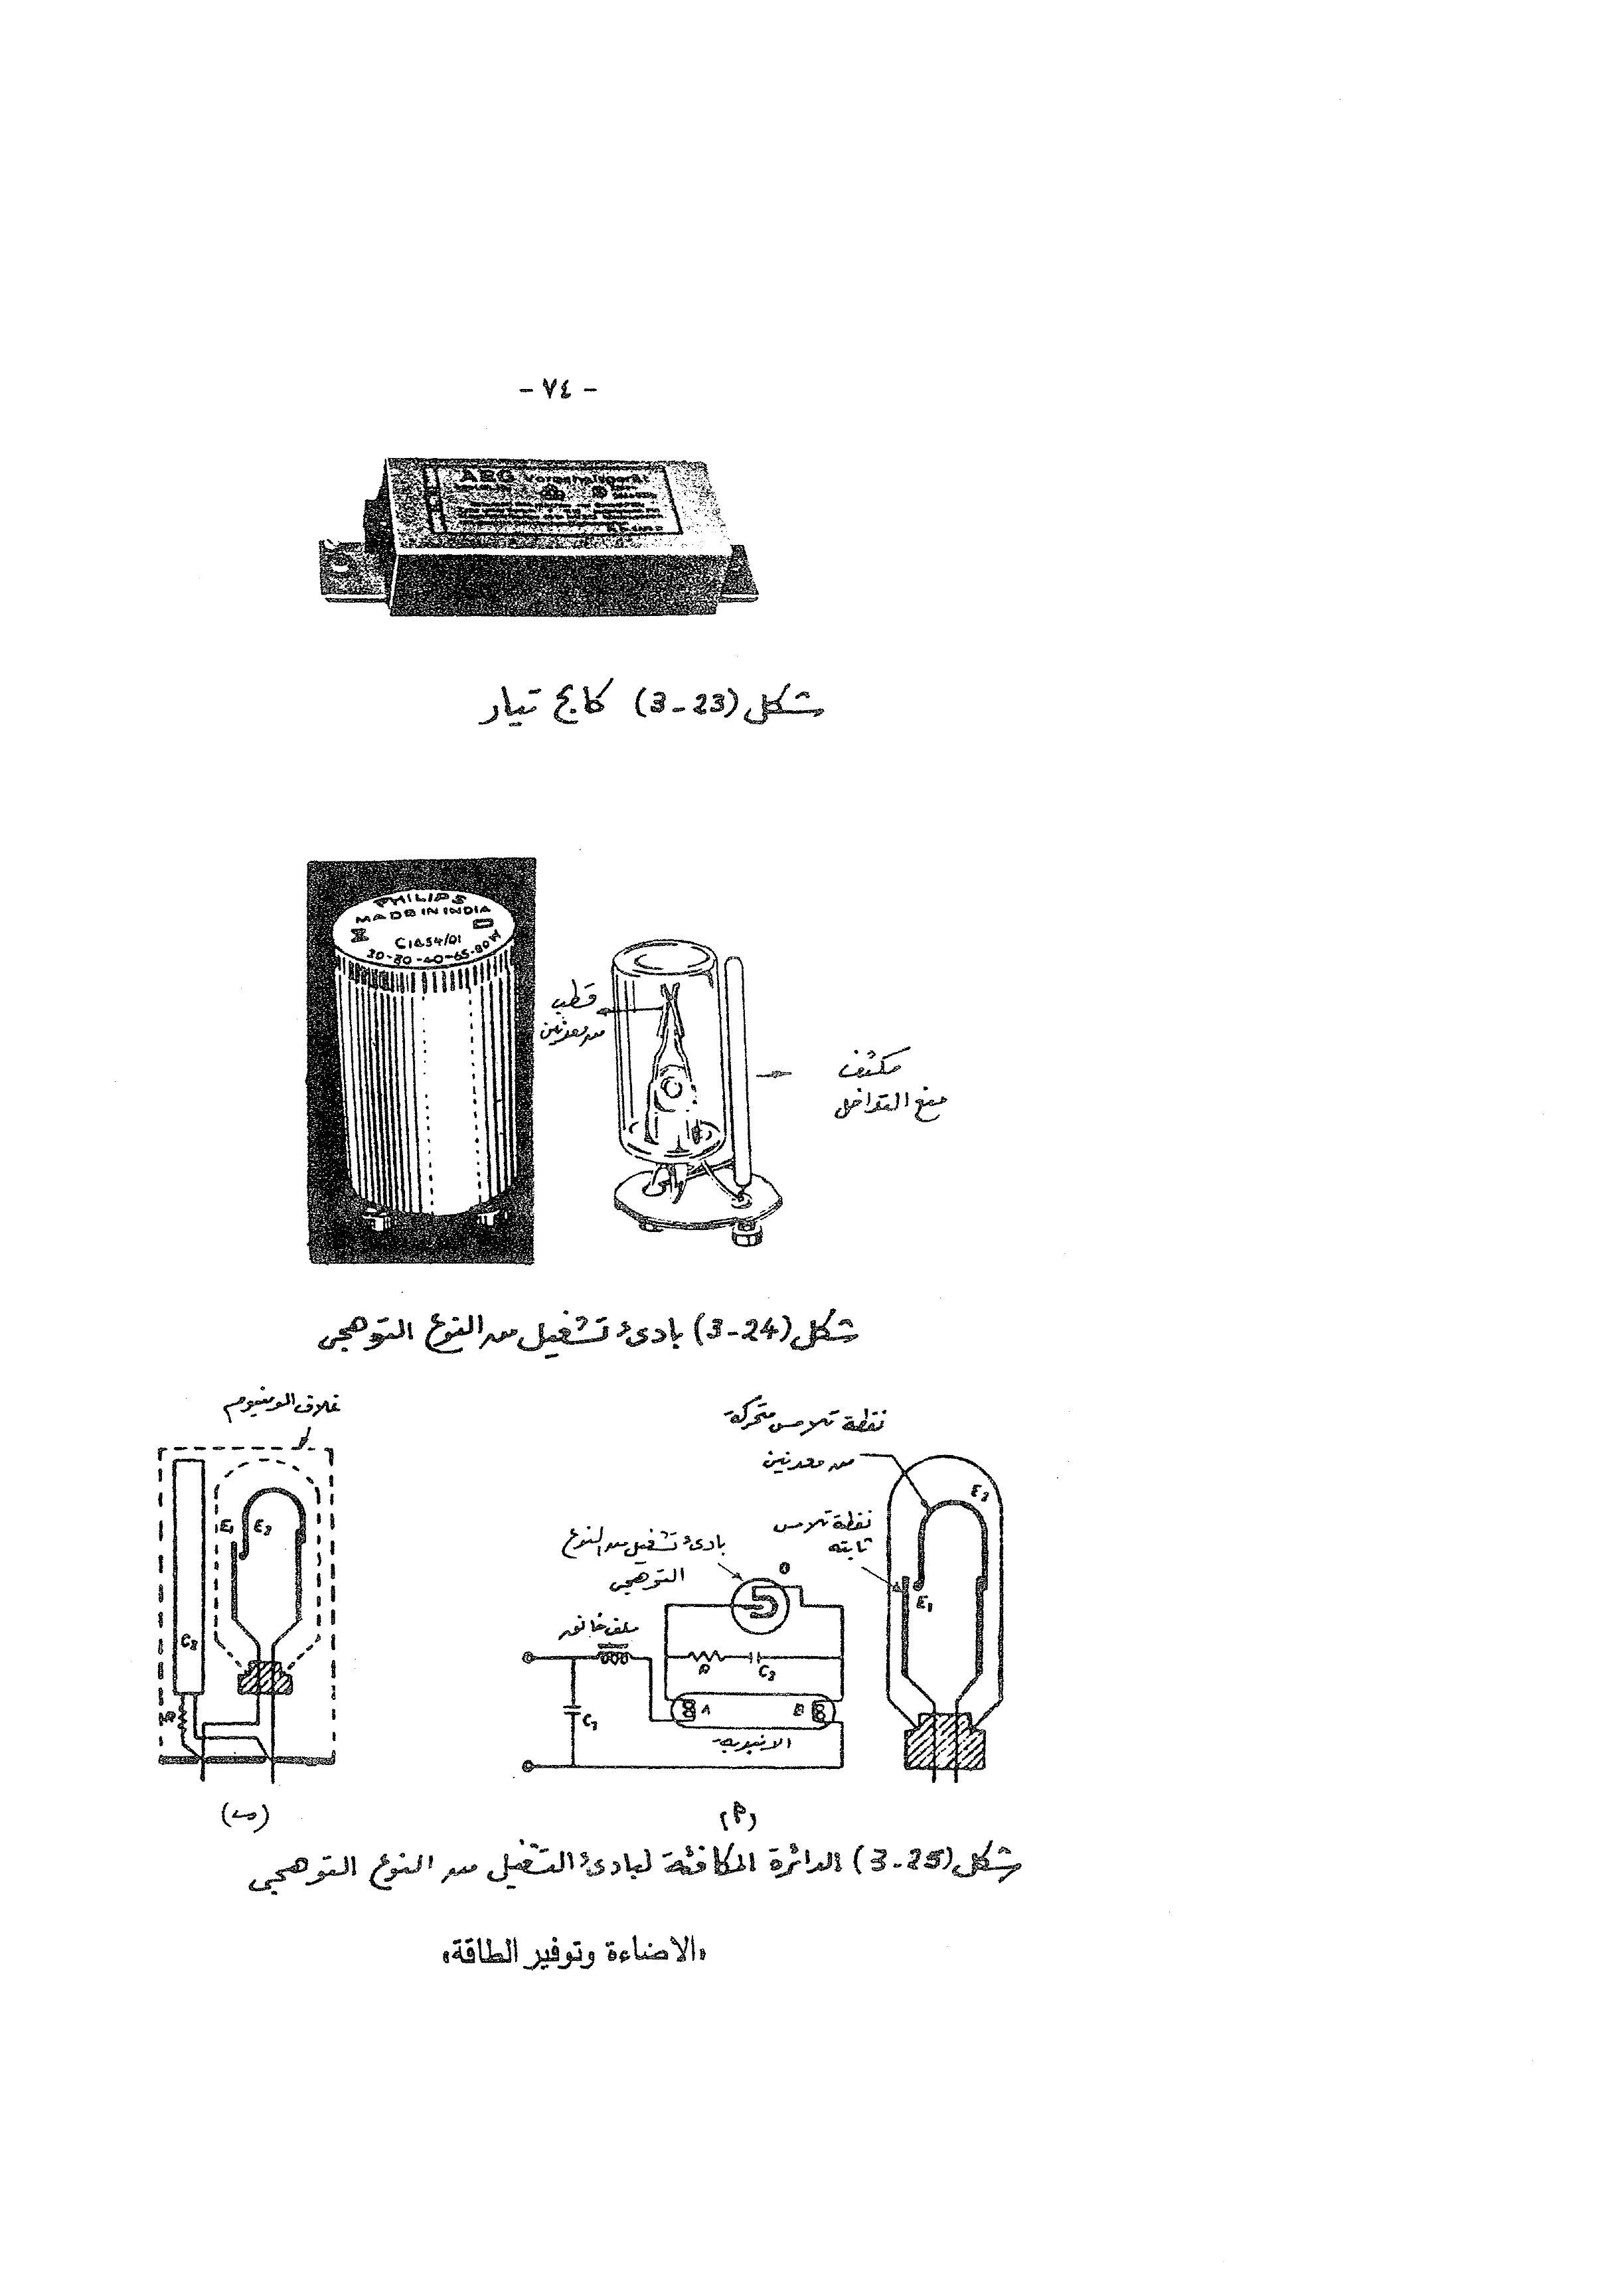 - ٧٤ -
AEG Vorschaltgerät
شكل (3-23) كابح تيار
PHILIPS
MADE IN INDIA
C1854/01
20-30-40-65-80W
قطب
من معدنين
مكثف
منع التداخل
شكل (3-24) بادئ تشغيل من النوع التوهجي
غلاف الومنيوم
E1
E2
C2
R
نقطة تلامس متحركة
من معدنين
نقطة تلامس
ثابته
E2
E1
بادئ تشغيل من النوع
التوهجي
ملف خانق
R
C2
C1
A
B
الانبوبة
(ب)
(أ)
شكل (3-25) الدائرة المكافئة لبادئ التشغيل من النوع التوهجي
«الاضاءة وتوفير الطاقة»